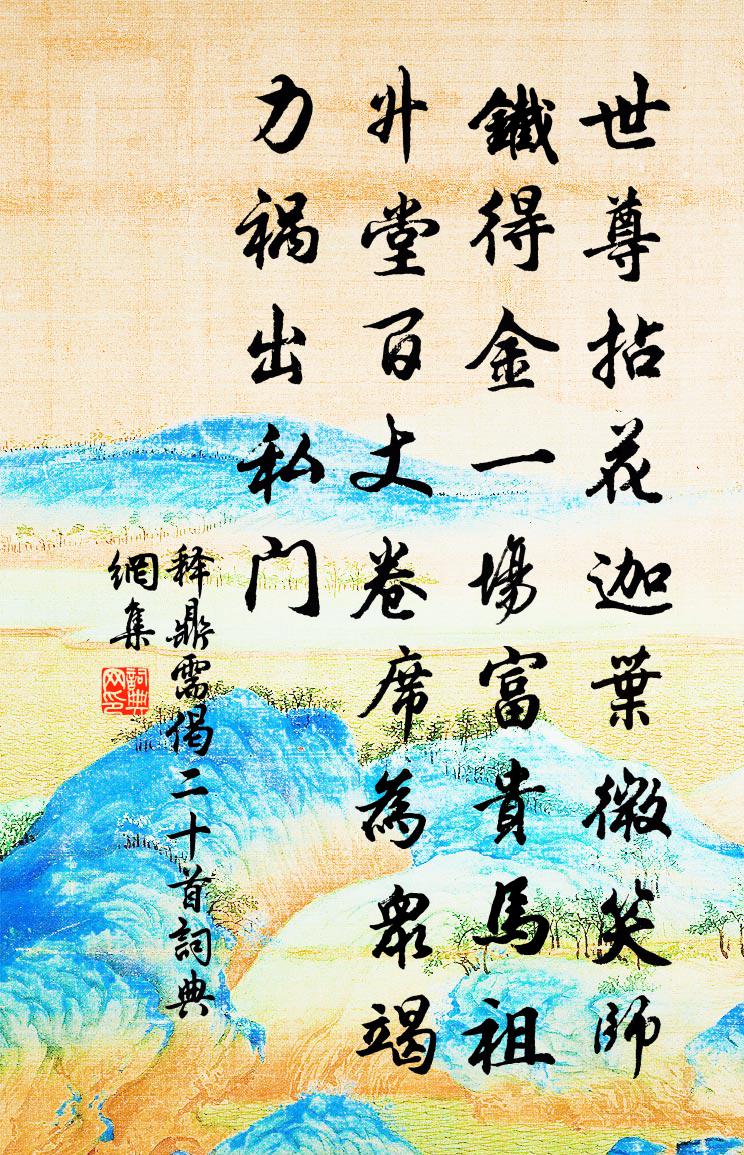 世尊拈花迦葉微笑師
鐵得金一場富貴馬祖
升堂百丈卷席為眾竭
力祸出私门
释鼎需偈二十首詞典
網集
詞典
网印